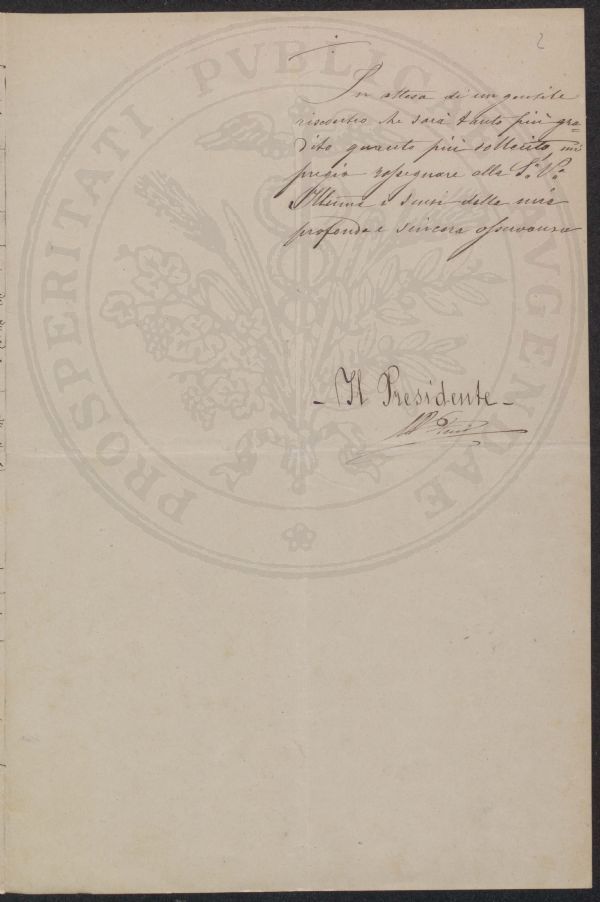 2
In attesa di un gentile
riscontro che sarà tanto più gra=
dito quanto più sollecito, mi
pregio rassegnare alla S.a V.a
Illma i sensi della mia
profonda e sincera osservanza
- Il Presidente -
PROSPERITATI PVBLIC AVGENDAE